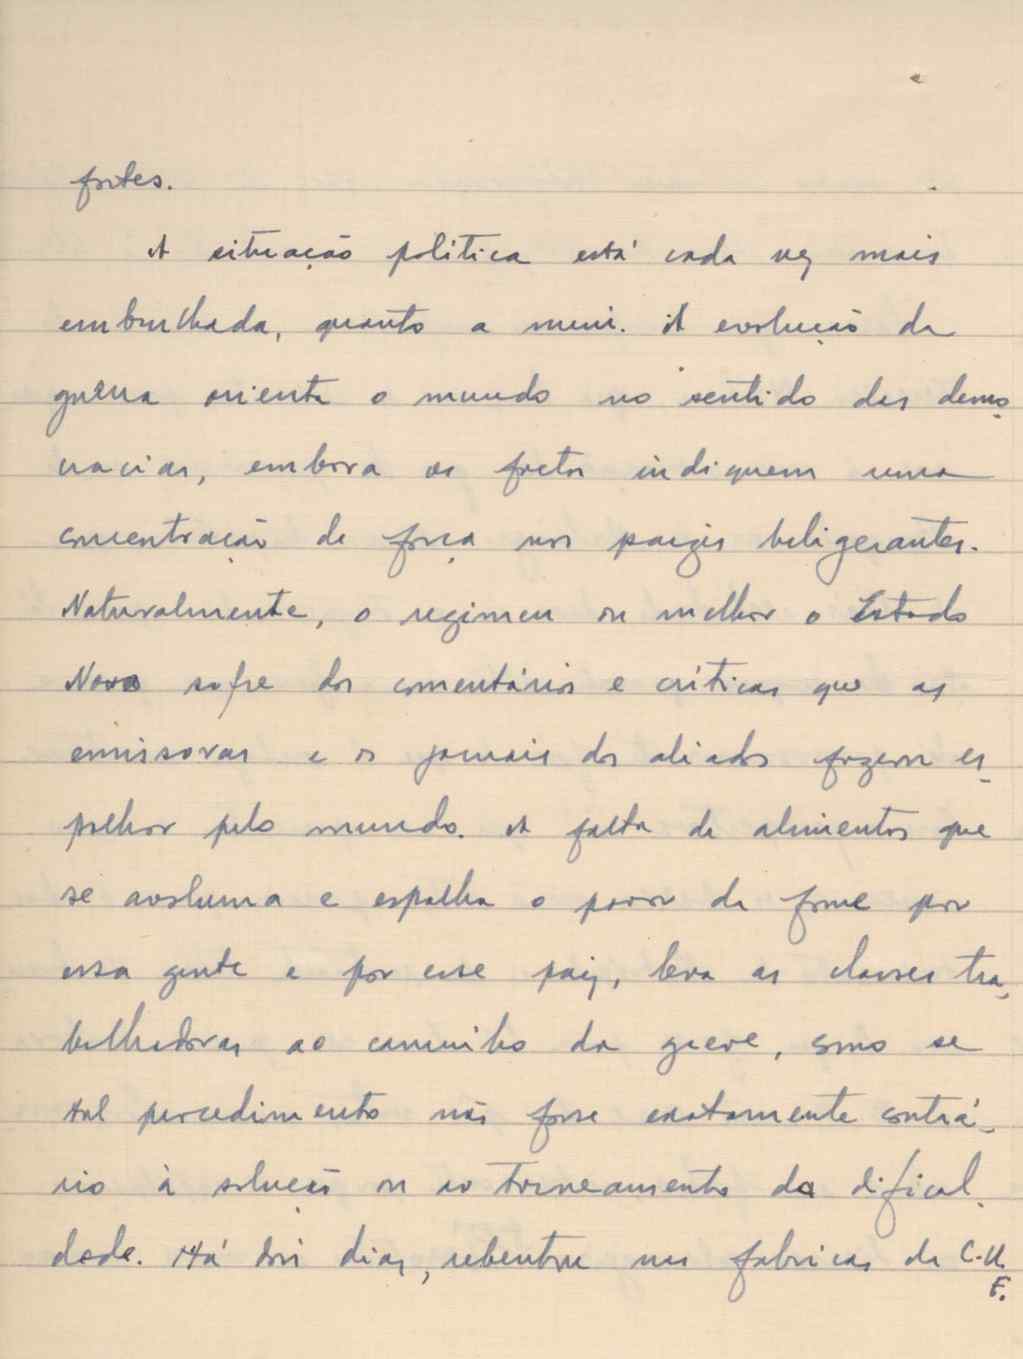 fortes.
A situação politica está cada vez mais
embrulhada, quanto a mim. A evolução da
guerra orienta o mundo no sentido das demo-
cracias, embora os factos indiquem uma
concentração de força nos paizes beligerantes.
Naturalmente, o regimen ou melhor o Estado
Novo sofre dos comentários e críticas que as
emissoras e os jornais dos aliados fazem es-
palhar pelo mundo. A falta de alimentos que
se avoluma e espalha o pavor da fome por
essa gente e por esse paiz, leva as classes tra-
balhadoras ao caminho da greve, como se
tal procedimento não fosse exatamente contrá-
rio à solução ou ao torneamento da dificul-
dade. Há dois dias, rebentou nas fabricas da C.U.
F.